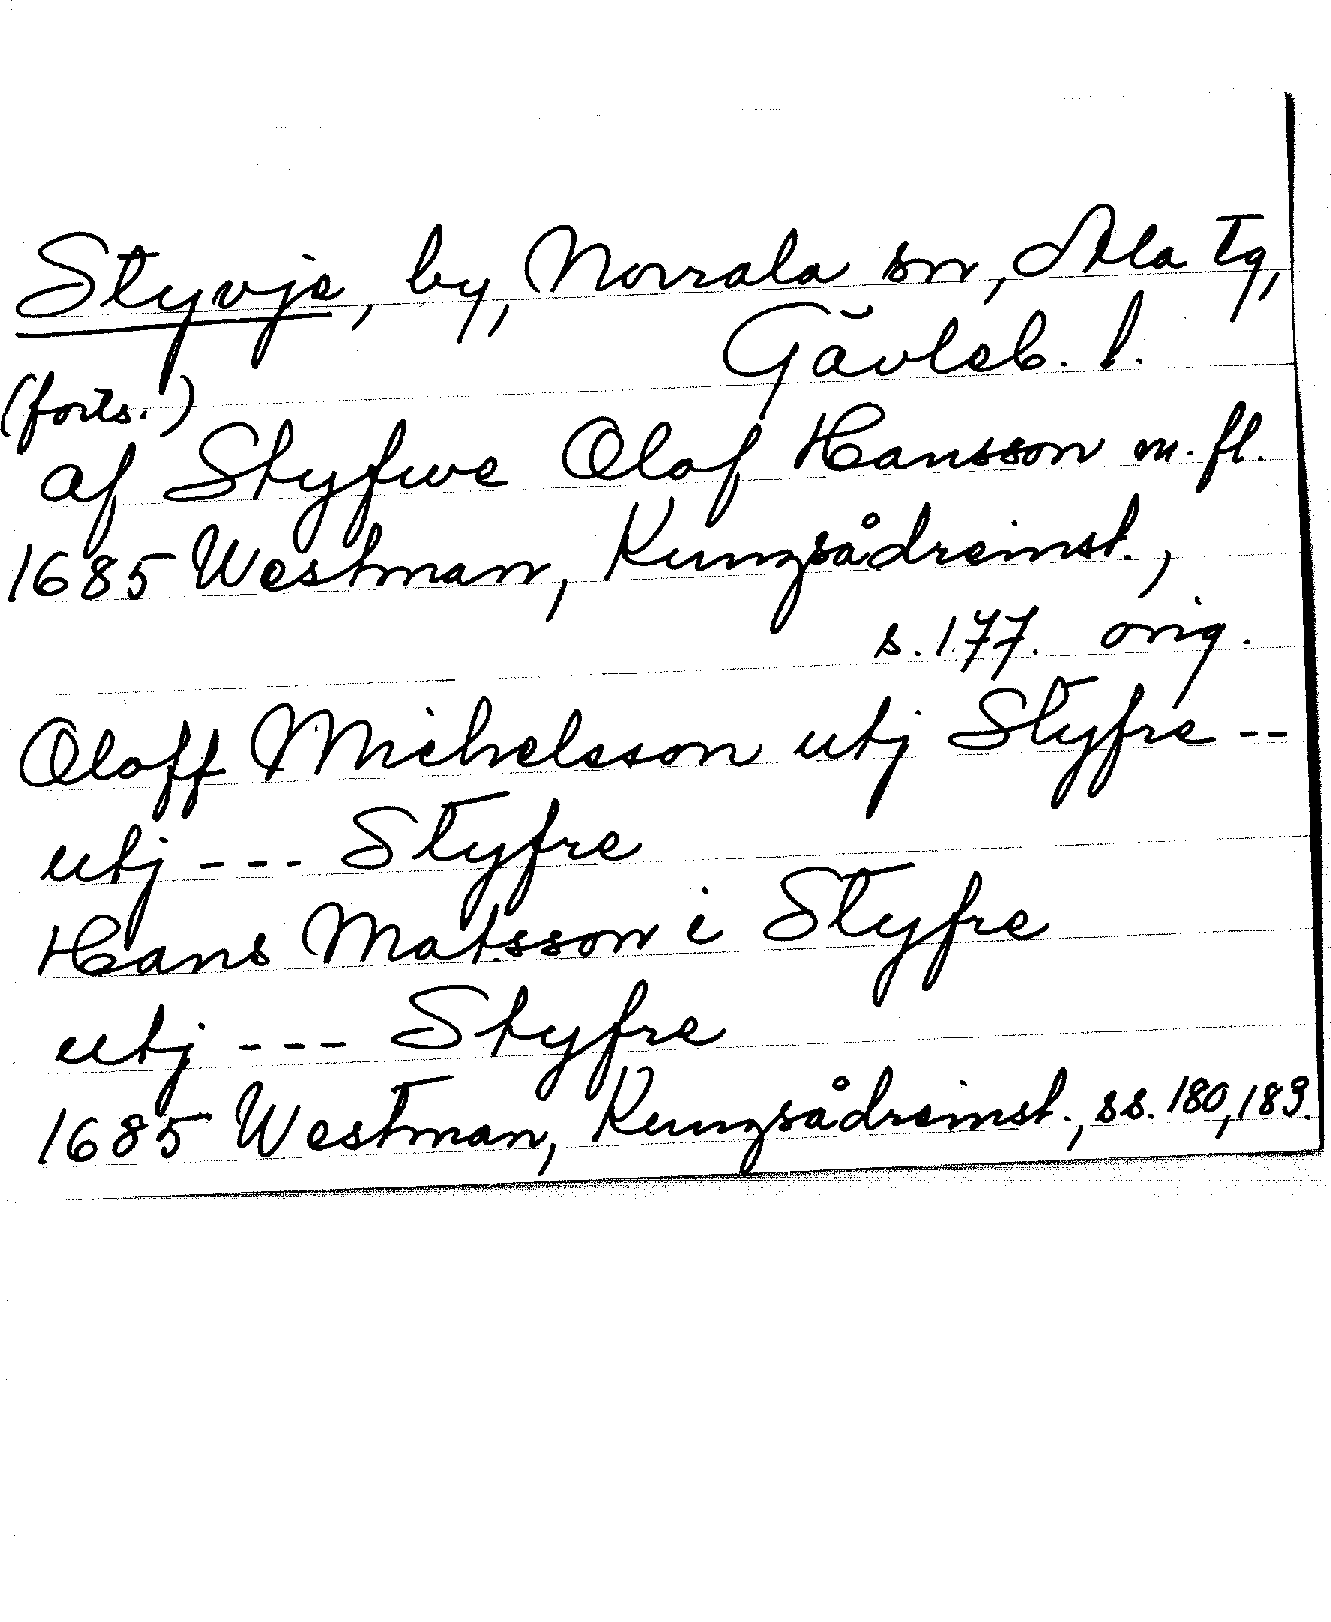 Styvje, by, Norrala sn, Ala tg,
Gävleb. l.
(forts.)
af Styfwe Olof Hansson m. fl.
1685 Westman, Kungsådreinst.,
s. 177. orig.
Oloff Michelsson utj Styfre --
utj --- Styfre
Hans Matsson i Styfre
utj --- Styfre
1685 Westman, Kungsådreinst., ss. 180, 183.